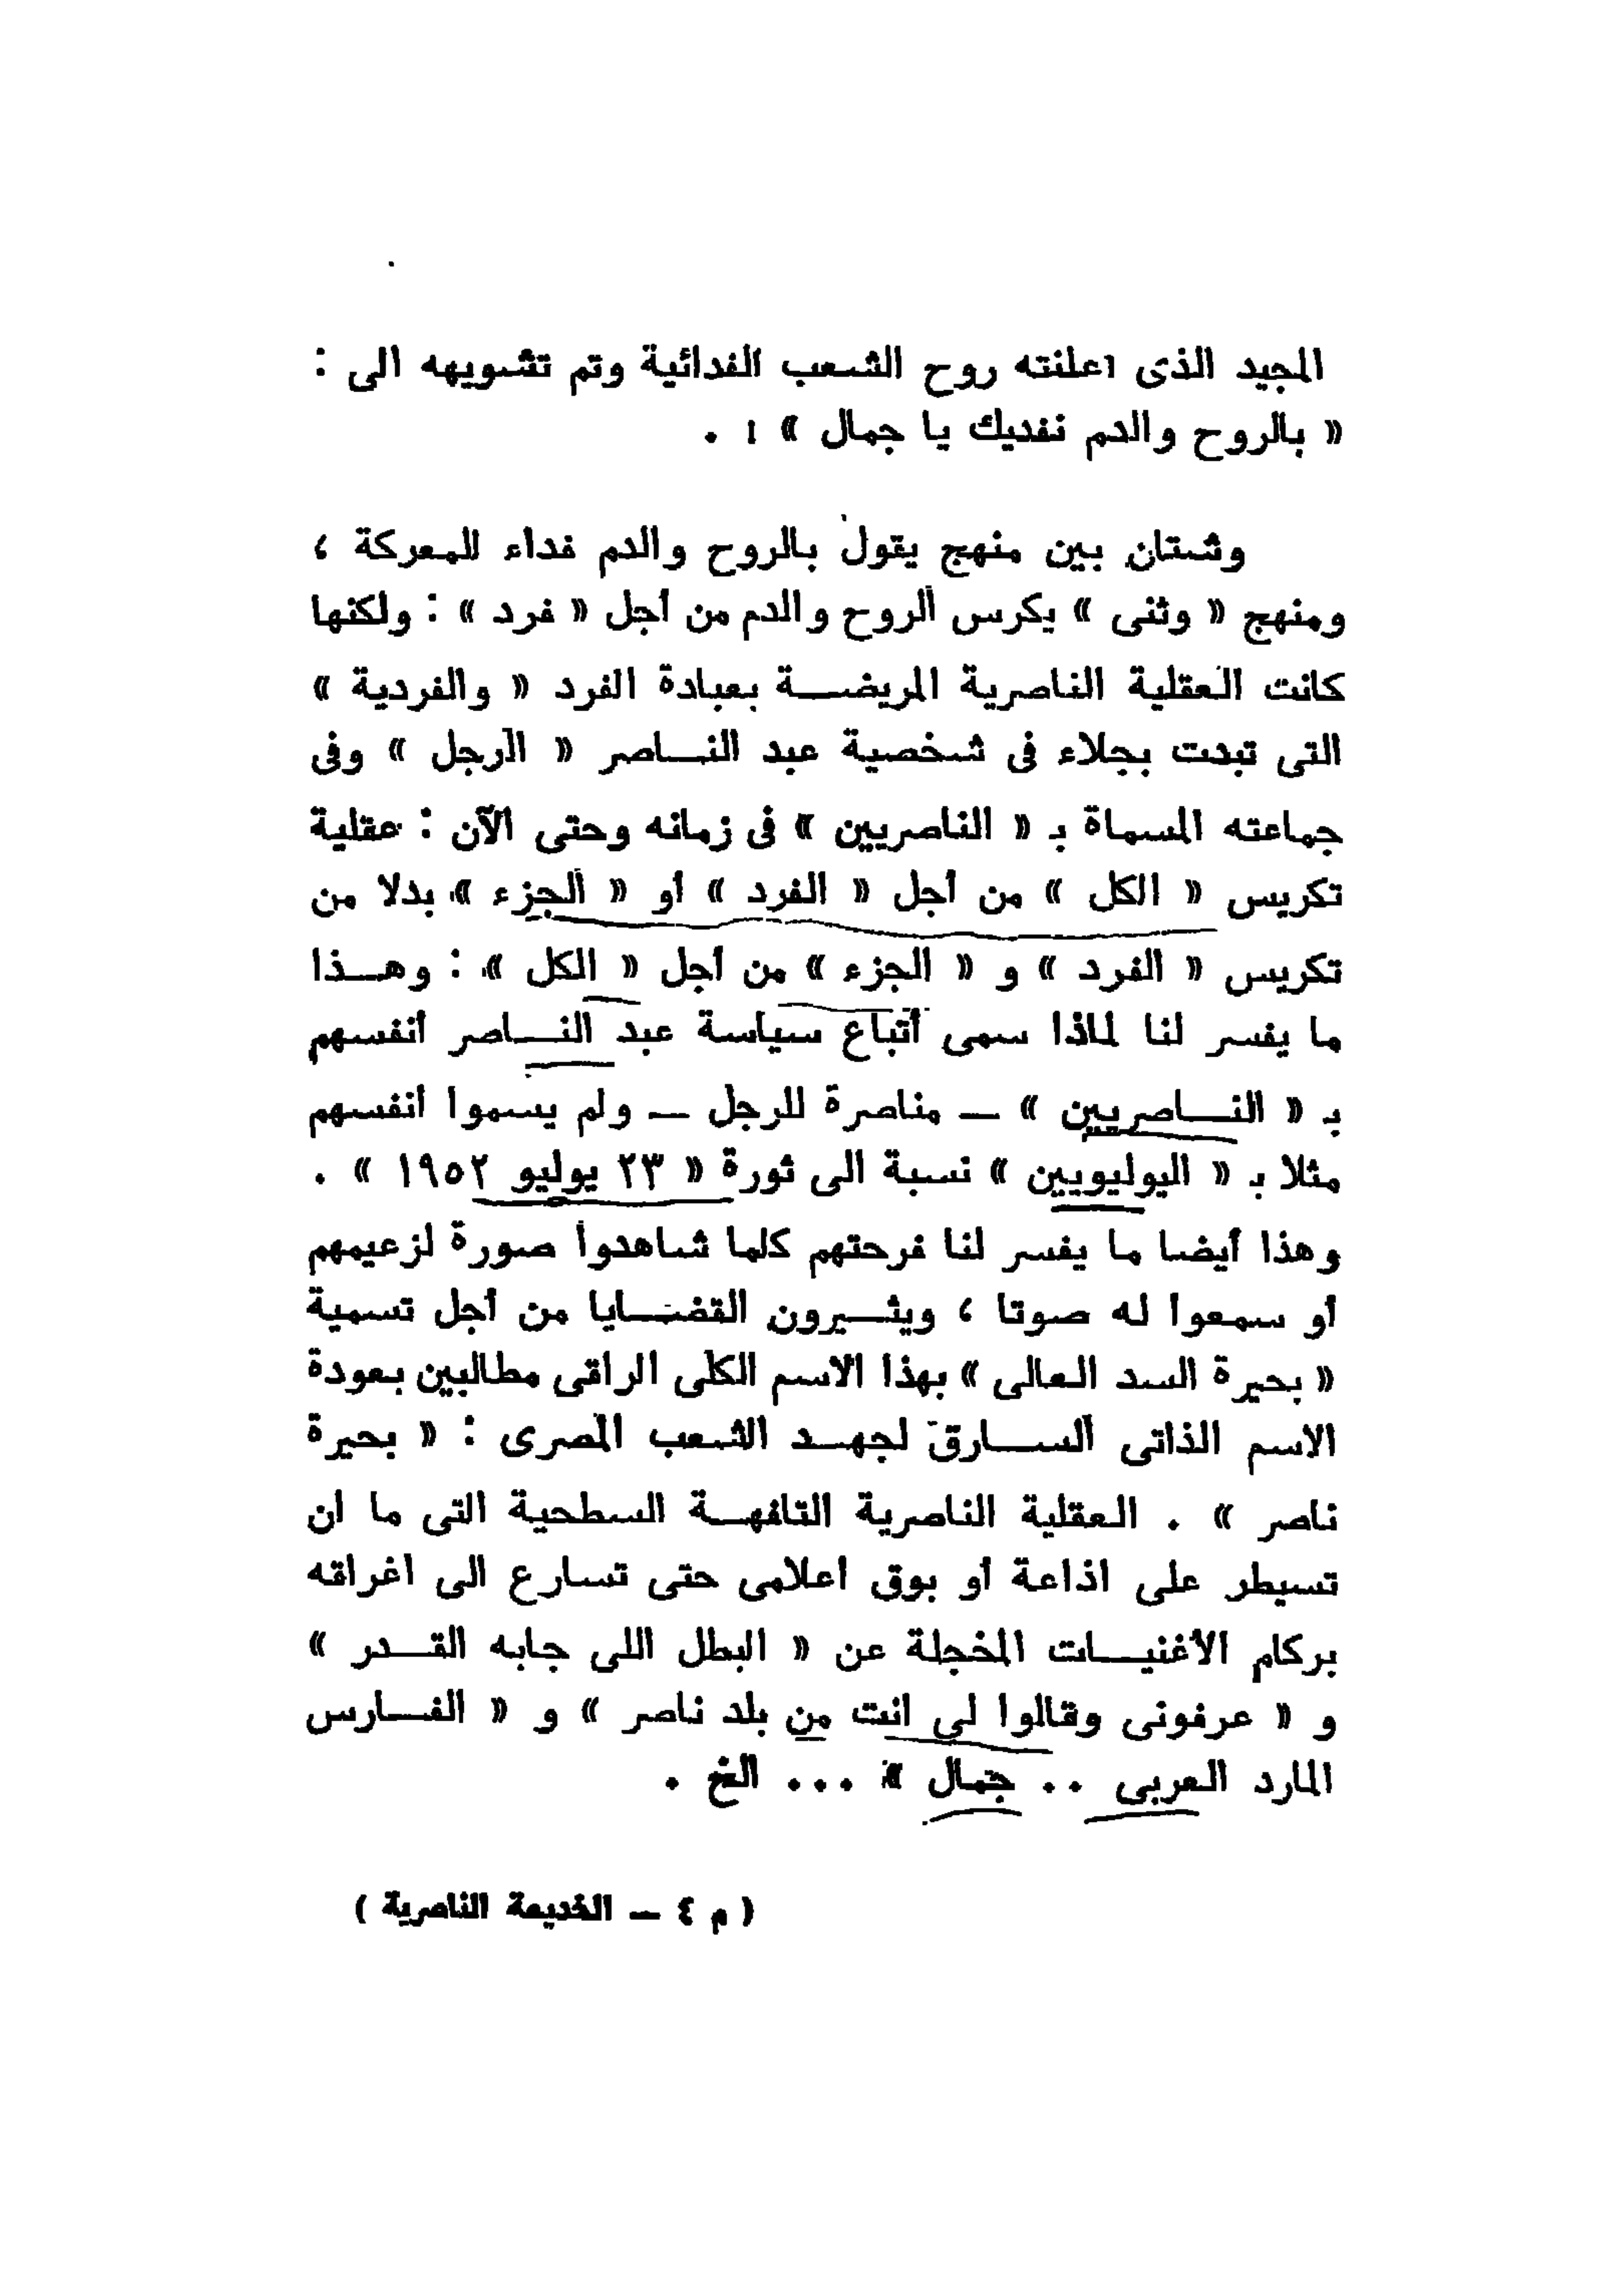 المجيد الذى اعلنته روح الشعب الفدائية وتم تشويهه الى :
« بالروح والدم نفديك يا جمال » ! .
وشتان بين منهج يقول بالروح والدم فداء للمعركة ،
ومنهج « وثنى » يكرس الروح والدم من أجل « فرد » : ولكنها
كانت العقلية الناصرية المريضة بعبادة الفرد « والفردية »
التى تبدت بجلاء فى شخصية عبد الناصر « الرجل » وفى
جماعته المسماة بـ « الناصريين » فى زمانه وحتى الآن : عقلية
تكريس « الكل » من أجل « الفرد » أو « الجزء » بدلا من
تكريس « الفرد » و « الجزء » من أجل « الكل » : وهذا
ما يفسر لنا لماذا سمى أتباع سياسة عبد الناصر أنفسهم
بـ « الناصريين » – مناصرة للرجل – ولم يسموا أنفسهم
مثلا بـ « اليوليويين » نسبة الى ثورة « ٢٣ يوليو ١٩٥٢ » .
وهذا أيضا ما يفسر لنا فرحتهم كلما شاهدوا صورة لزعيمهم
أو سمعوا له صوتا ، ويثيرون القضايا من أجل تسمية
« بحيرة السد العالى » بهذا الاسم الكلى الراقى مطالبين بعودة
الاسم الذاتى السارق لجهد الشعب المصرى : « بحيرة
ناصر » . العقلية الناصرية التافهة السطحية التى ما ان
تسيطر على اذاعة أو بوق اعلامى حتى تسارع الى اغراقه
بركام الأغنيات المخجلة عن « البطل اللى جابه القدر »
و « عرفونى وقالوا لى انت من بلد ناصر » و « الفارس
المارد العربى .. جمال » ... الخ .
( م ٤ – الخديعة الناصرية )